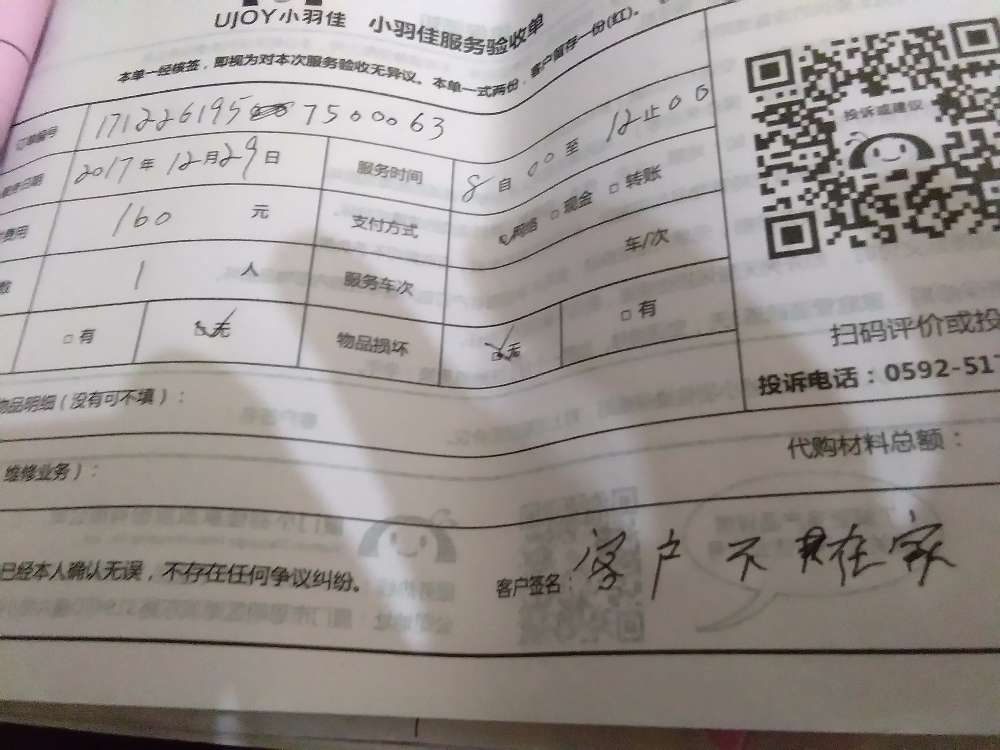 UJOY小羽佳 小羽佳服务验收单
本单一经核签，即视为对本次服务验收无异议。本单一式两份，客户留存一份(红)。
订单编号 171226195 7500063
服务日期 2017年12月29日 服务时间 8自00至12止00
费用 160 元 支付方式 网络 □现金 □转账
数 1 人 服务车次 车/次
□有 无 物品损坏 无 □有
投诉或建议
扫码评价或投
投诉电话：0592-51
物品明细（没有可不填）：
代购材料总额：
维修业务）：
已经本人确认无误，不存在任何争议纠纷。
客户签名：客户不在家